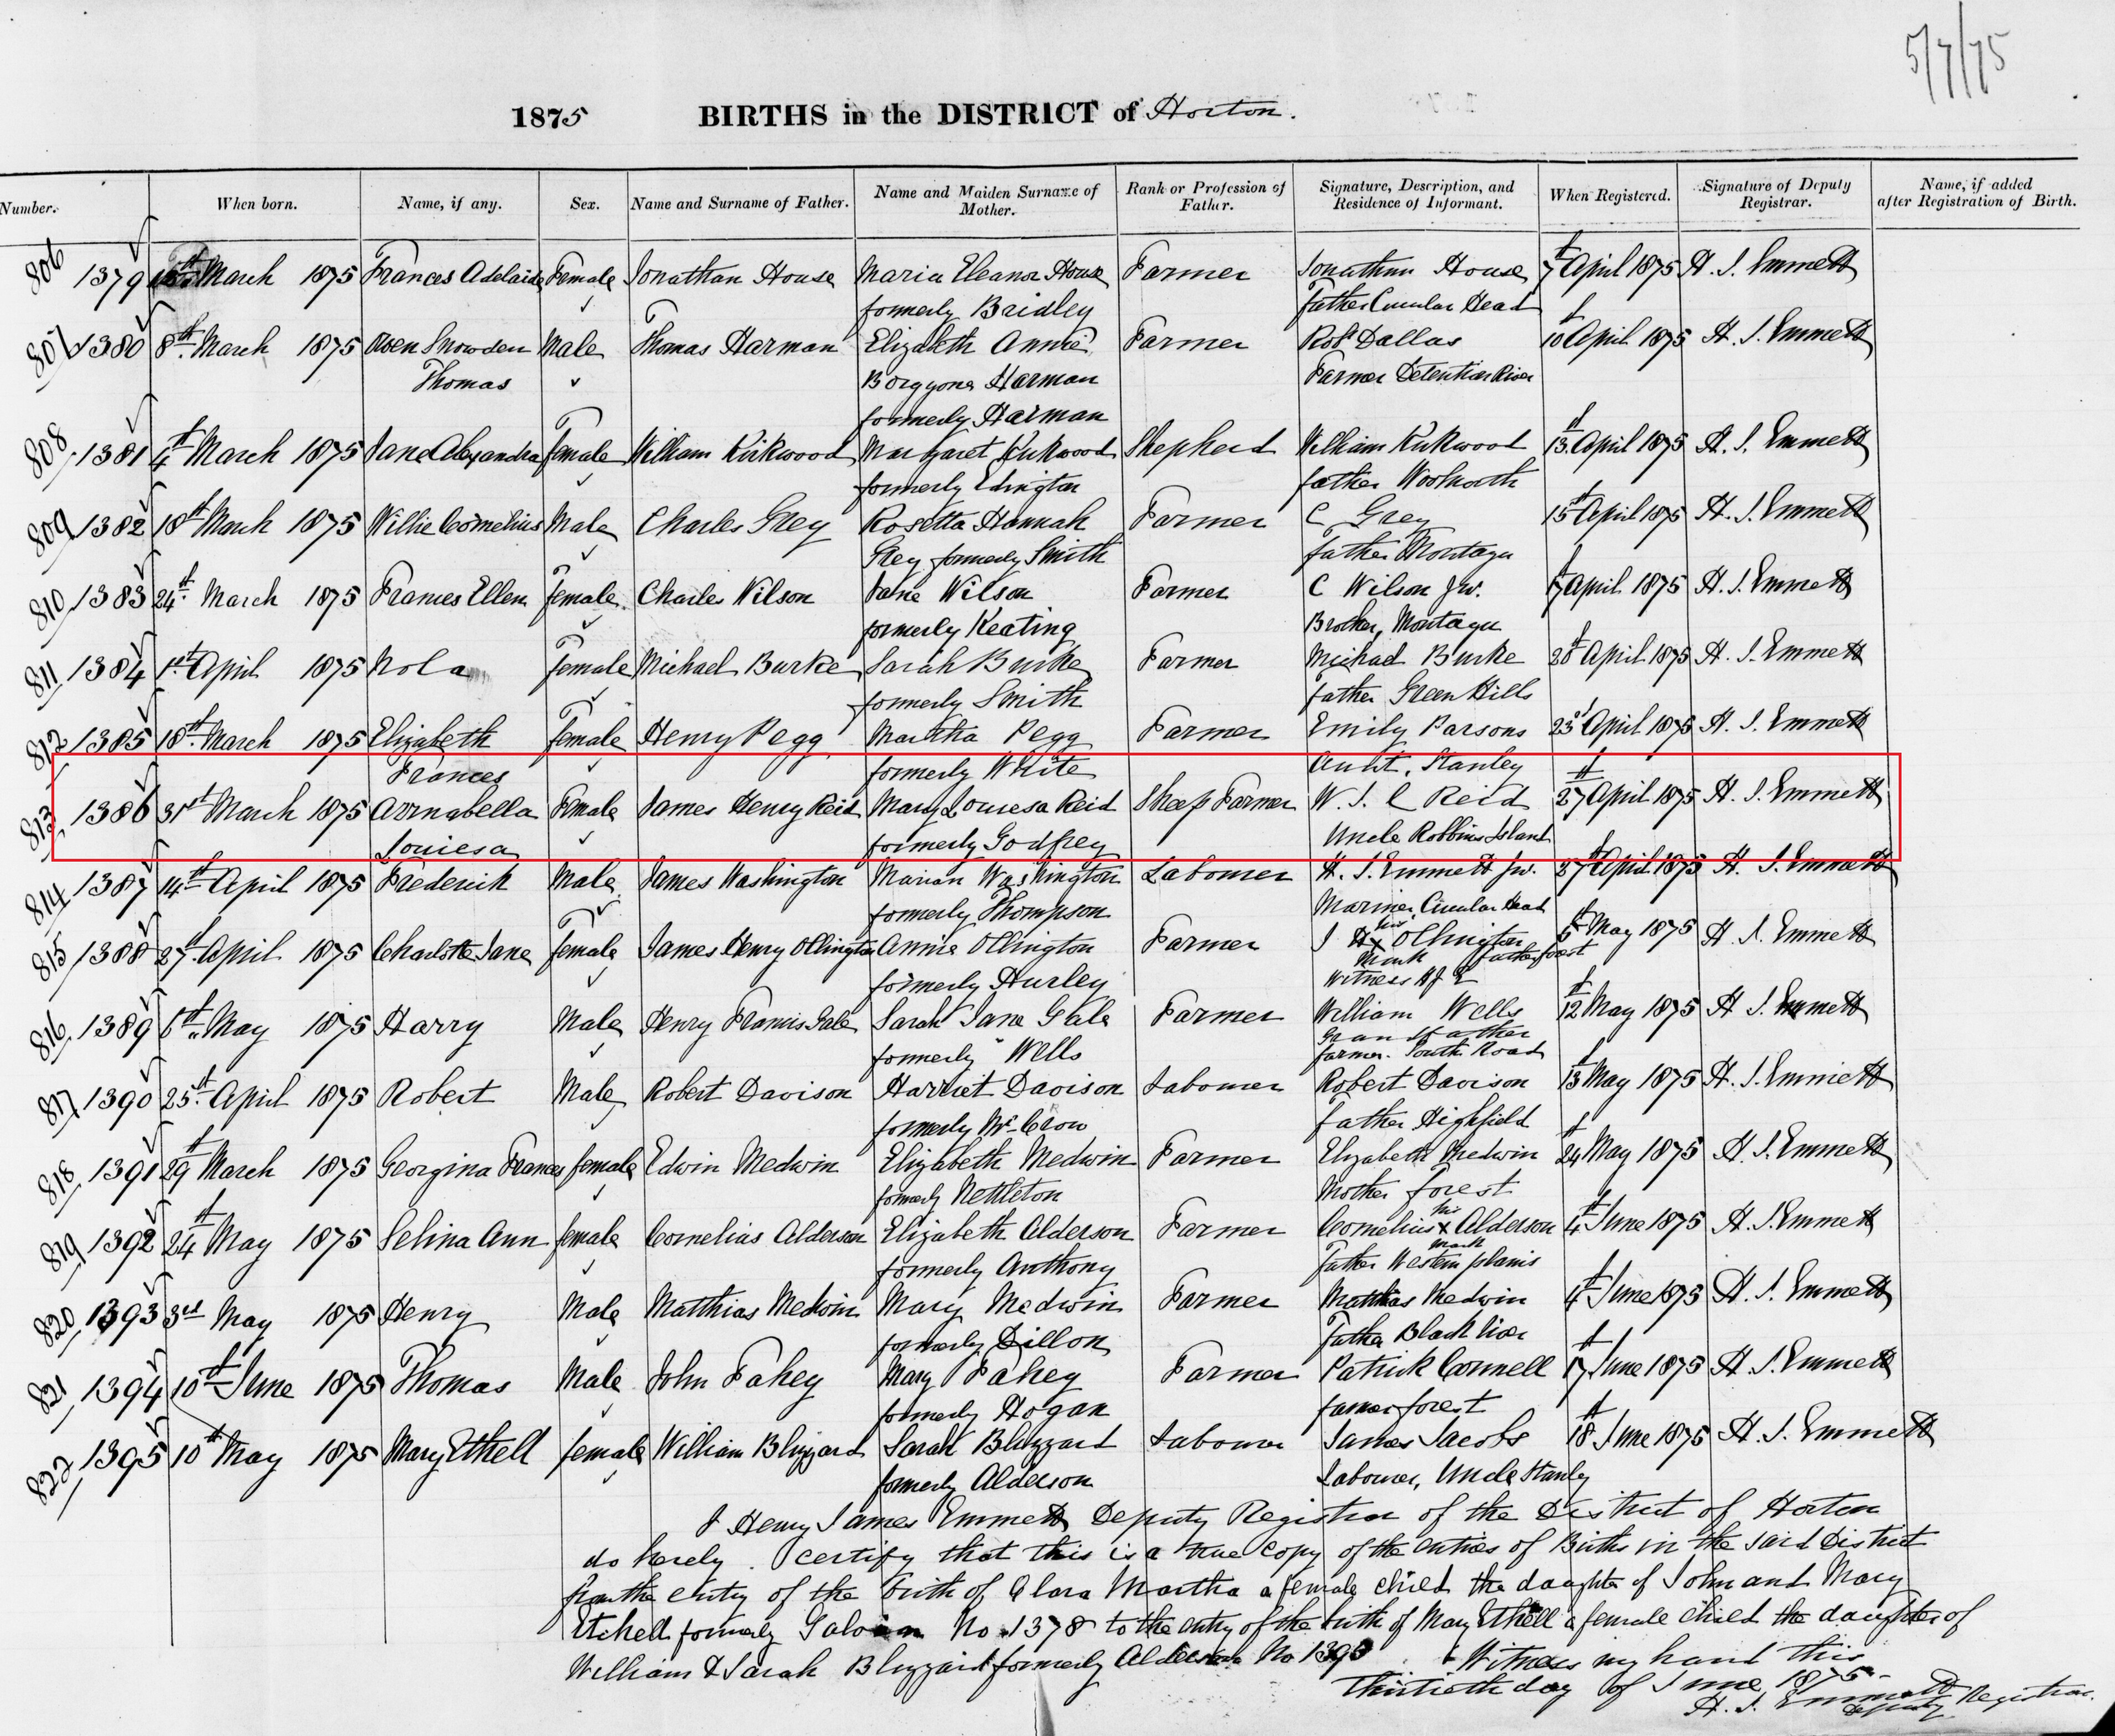 5/7/75
1875 BIRTHS in the DISTRICT of Horton.
Number. When born. Name, if any. Sex. Name and Surname of Father. Name and Maiden Surname of Mother. Rank or Profession of Father. Signature, Description, and Residence of Informant. When Registered. Signature of Deputy Registrar. Name, if added after Registration of Birth.
806 1379 March 1875 Frances Adelaide Female Jonathan House Maria Eleanor House Farmer Jonathan House 7th April 1875 H. J. Emmett
formerly Bridley Father Circular Head
807 1380 8th March 1875 Owen Snowden Male Thomas Harman Elizabeth Annie Farmer Robt Dallas 10th April 1875 H. J. Emmett
Thomas Harman Farmer Detention River
formerly Harman
808 1381 4th March 1875 Jane Alexandra female William Kirkwood Margaret Kirkwood Shepherd William Kirkwood 13th April 1875 H. J. Emmett
formerly Edington father Woolnorth
809 1382 18th March 1875 Willie Cornelius Male Charles Grey Rosetta Hannah Farmer C Grey 15th April 1875 H. J. Emmett
Grey formerly Smith father Montagu
810 1383 24th March 1875 Frances Ellen female Charles Wilson Jane Wilson Farmer C Wilson Jur. 17th April 1875 H. J. Emmett
formerly Keating Brother, Montagu
811 1384 1st April 1875 Nola female Michael Burke Sarah Burke Farmer Michael Burke 20th April 1875 H. J. Emmett
formerly Smith father Green Hills
812 1385 18th March 1875 Elizabeth Female Henry Pegg Martha Pegg Farmer Emily Parsons 23rd April 1875 H. J. Emmett
Frances formerly White Aunt, Stanley
813 1386 31st March 1875 Arrnabella Female James Henry Reid Mary Louiesa Reid Sheep Farmer W. J. C Reid 27th April 1875 H. J. Emmett
Louiesa formerly Godfrey Uncle Robbins Island
814 1387 14th April 1875 Frederick Male James Washington Marian Washington Labourer H. J. Emmett Jur. 27th April 1875 H. J. Emmett
formerly Thompson Mariner, Circular Head
815 1388 27th April 1875 Charlotte Jane female James Henry Ollington Annie Ollington Farmer J H his x Ollington 5th May 1875 H. J. Emmett
mark father forest
formerly Hurley Witness HJE
816 1389 6th May 1875 Harry Male Henry Francis Gale Sarah Jane Gale Farmer William Wells 12th May 1875 H. J. Emmett
Grandfather
formerly Wells farmer. South Road
817 1390 25th April 1875 Robert Male Robert Davison Harriet Davison Labourer Robert Davison 13th May 1875 H. J. Emmett
formerly McCrow father Highfield
818 1391 29th March 1875 Georgina Frances female Edwin Medwin Elizabeth Medwin Farmer Elizabeth Medwin 24th May 1875 H. J. Emmett
formerly Nettleton Mother forest
819 1392 24th May 1875 Selina Ann female Cornelius Alderson Elizabeth Alderson Farmer Cornelius his x Alderson 4th June 1875 H. J. Emmett
mark
formerly Anthony Father Western plains
820 1393 3rd May 1875 Henry Male Matthias Medwin Mary Medwin Farmer Matthias Medwin 4th June 1875 H. J. Emmett
formerly Dillon Father Black River
821 1394 10th June 1875 Thomas Male John Fahey Mary Fahey Farmer Patrick Connell 17th June 1875 H. J. Emmett
formerly Hogan farmer forest
822 1395 10th May 1875 Mary Ethell female William Blizzard Sarah Blizzard Labourer James Jacobs 18th June 1875 H. J. Emmett
formerly Alderson Labourer, Uncle Stanley
I Henry James Emmett Deputy Registrar of the District of Horton
do hereby certify that this is a true copy of the entries of Births in the said District
from the entry of the birth of Clara Martha a female child the daughter of John and Mary
Etchell formerly No 1378 to the entry of the birth of Mary Ethell a female child the daughter of
William & Sarah Blizzard formerly Alderson No 1395 Witness my hand this
thirtieth day of June 1875
H. J. Emmett
Deputy Registrar.